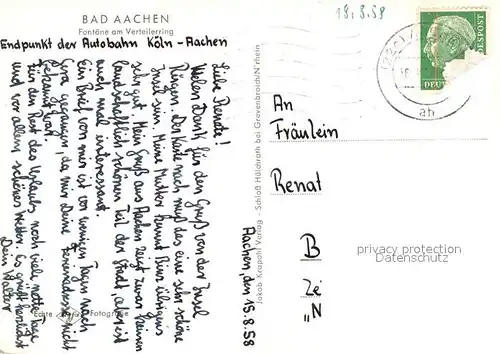 BAD AACHEN
Fontäne am Verteilerring
Endpunkt der Autobahn Köln - Aachen
Liebe Renate!
Vielen Dank für den Gruß von der Insel
Rügen. Der Karte nach muß das eine sehr schöne
Insel sein. Meine Mutter kennt Binz übrigens
sehr gut. Mein Gruß aus Aachen zeigt zwar keinen
landschaftlich schönen Teil der Stadt, aber ist
auch mal interessant.
Ein Brief von mir ist vor wenigen Tagen nach
Gera gegangen, da mir Deine Ferienadresse nicht
bekannt war.
Für den Rest des Urlaubs noch viele nette Tage
und vor allem schönes Wetter. Es grüßt herzlichst
Dein Walter
Echte Fotografie
Jakob Krapohl Verlag - Schloß Hülchrath bei Grevenbroich/N'rhein
Aachen, den 15.8.58
18.8.58
(22c)
ab
DEUT
DESPOST
An
Fräulein
Renat
B
Ze
„N
privacy protection
Datenschutz